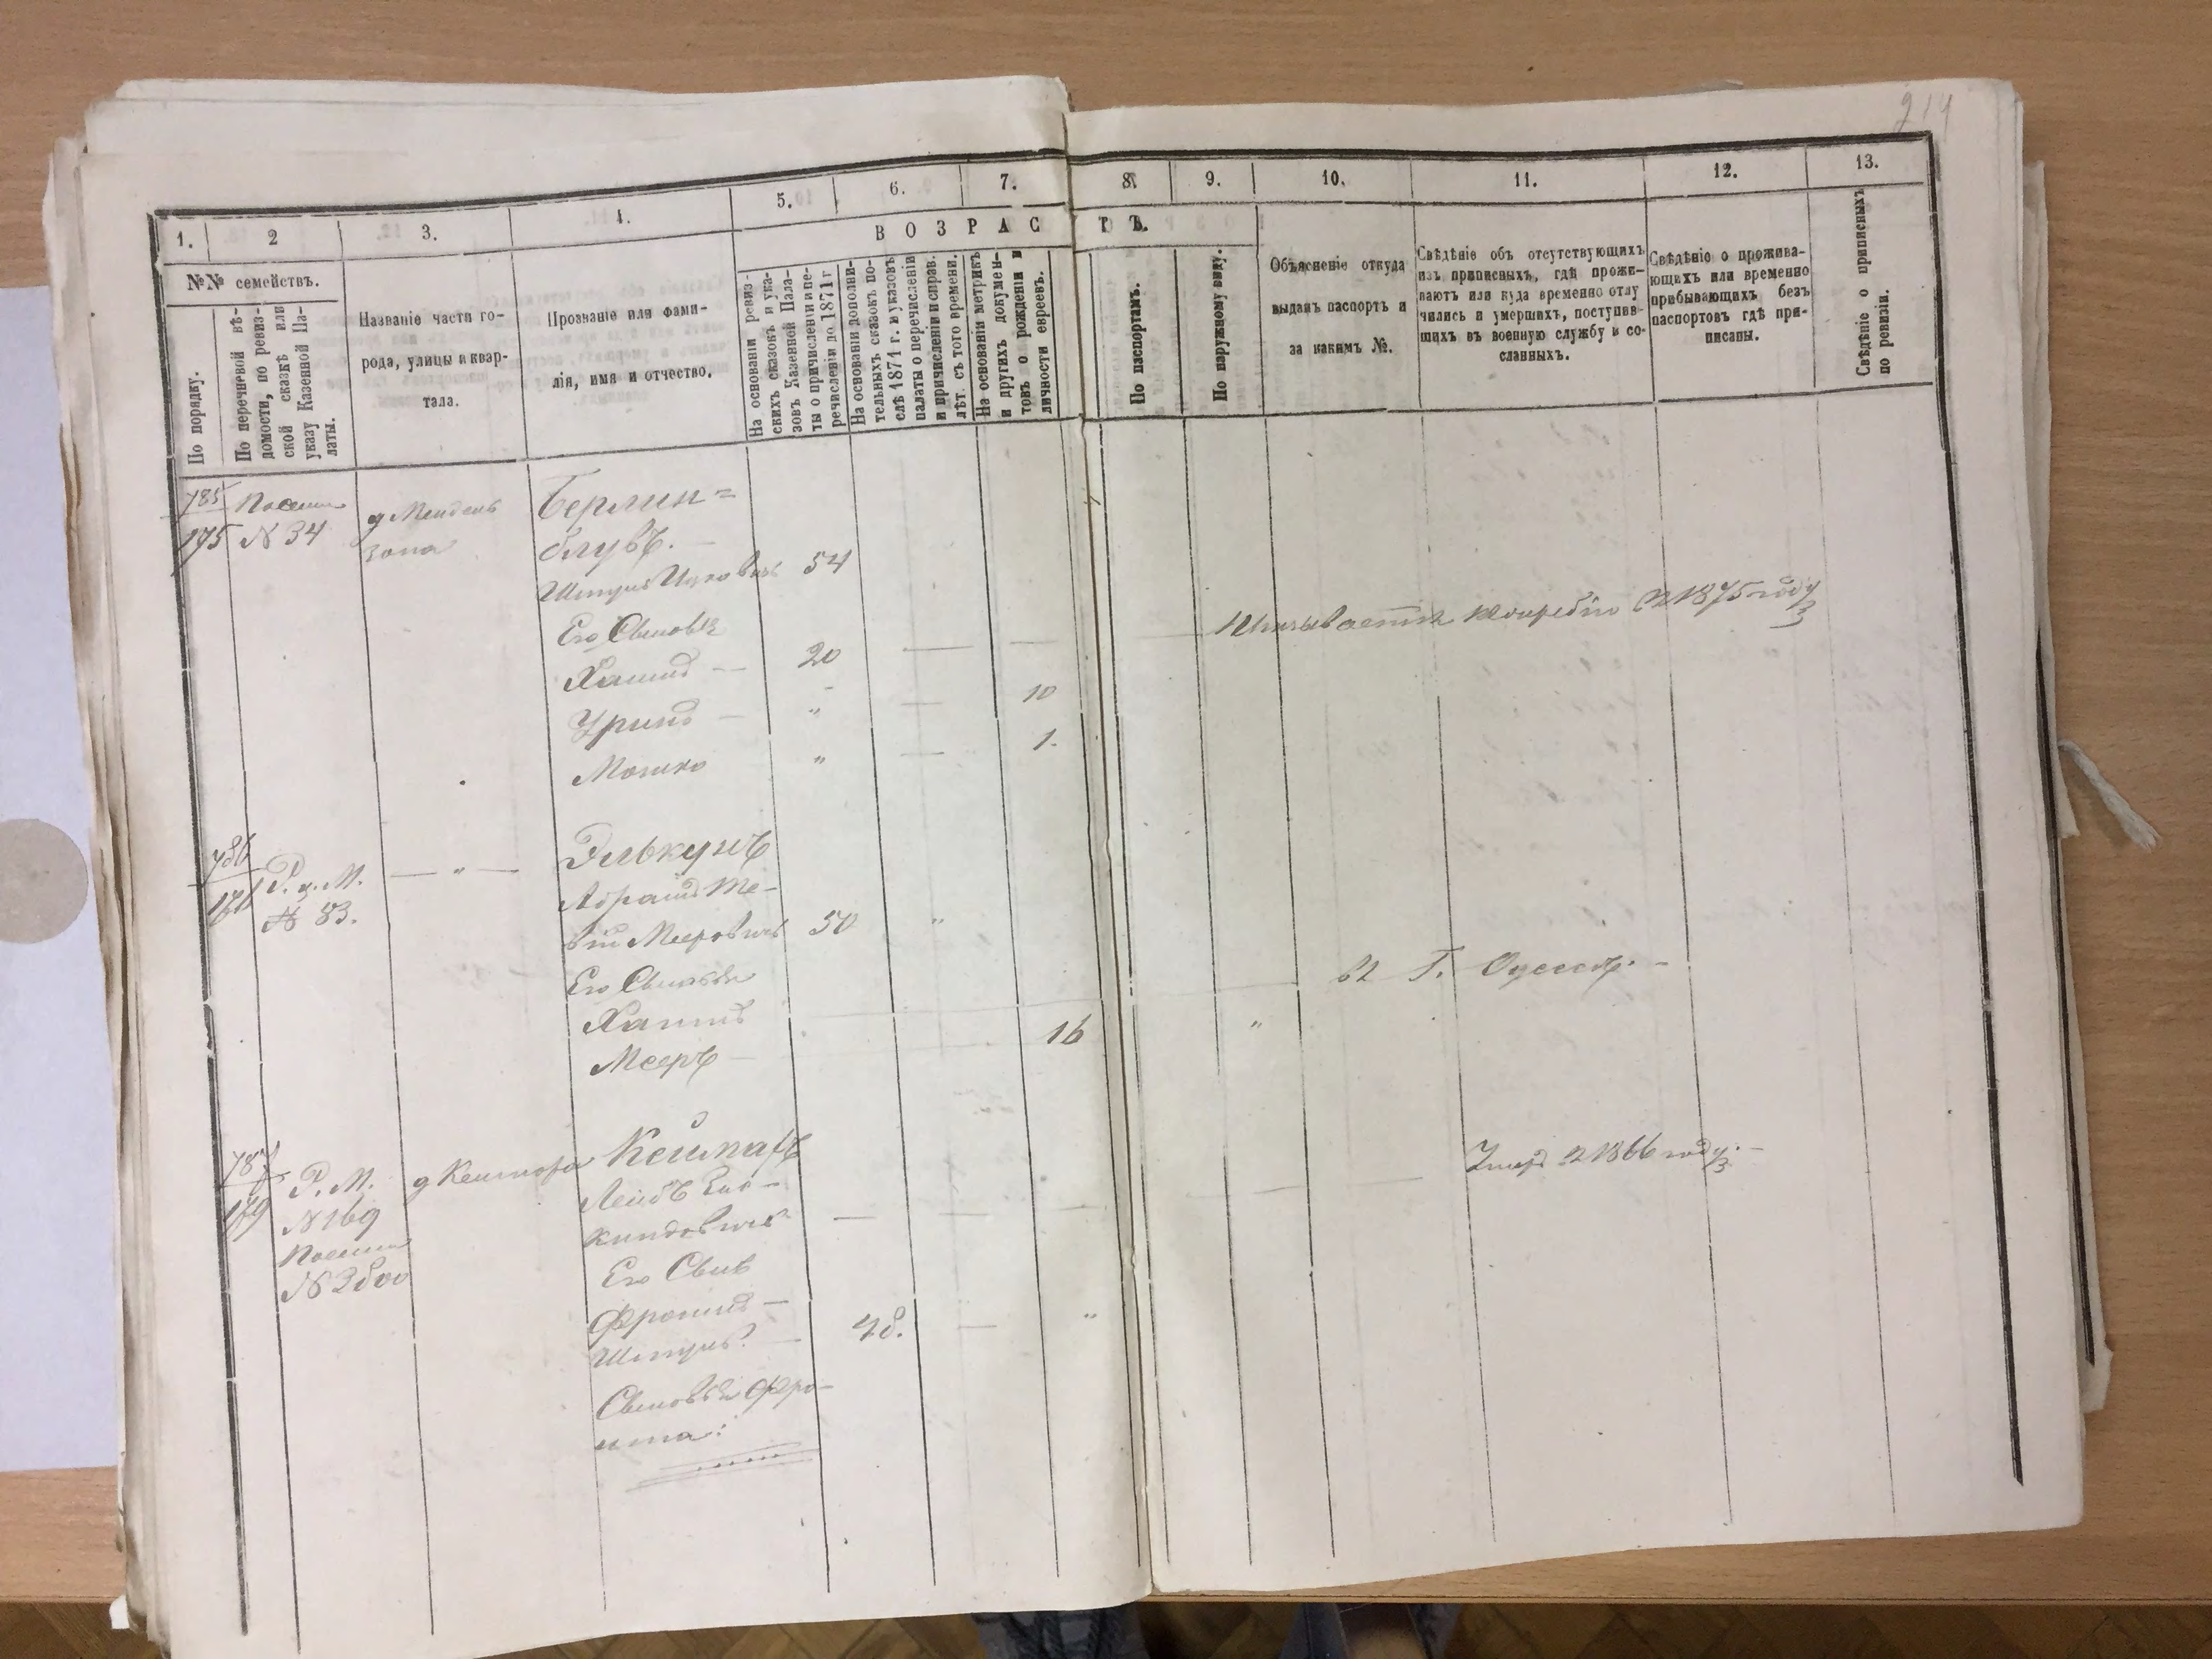 214
1. 2 3. 4. 5. 6. 7. 8. 9. 10. 11. 12. 13.
ВОЗРАСТЪ.
№№ семействъ.
По порядку.
По перечневой вѣ-
домости, по ревиз-
ской сказкѣ или
указу Казенной Па-
латы.
Названіе части го-
рода, улицы и квар-
тала.
Прозваніе или фами-
лія, имя и отчество.
На основаніи ревиз-
скихъ сказокъ и ука-
зовъ Казенной Пала-
ты о причисленіи и пе-
речисленіи до 1871 г
На основаніи дополни-
тельныхъ сказокъ по-
слѣ 1871 г. и указовъ
палаты о перечисленіи
и причисленіи и справ.
лѣт. съ того времени.
На основаніи метрикъ
и другихъ докумен-
товъ о рожденіи и
личности евреевъ.
По паспортамъ.
По наружному виду.
Объясненіе откуда
выданъ паспортъ и
за какимъ №.
Свѣдѣніе объ отсутствующихъ
изъ приписныхъ, гдѣ прожи-
ваютъ или куда временно отлу
чились и умершихъ, поступив-
шихъ въ военную службу и со-
сланныхъ.
Свѣдѣніе о прожива-
ющихъ или временно
прибывающихъ безъ
паспортовъ гдѣ при-
писаны.
Свѣдѣніе о приписныхъ
по ревизіи.
785
175
N 34
д Мендель
зона
Берлин=
блувъ.
Шмуль Ицковичъ 54
Его Сыновья
Хаимъ — 20
жребію въ 1875 году
" 10
Мошко " 1.
786
Р. д. М. — " —
№ 83.
Элькунъ
Абрамъ
Мееровичъ 50 "
Его Сыновья
Хаимъ
въ Г. Одессѣ. —
Мееръ — 16 "
787
179
Р. М.
N 169
N 2500
Лейбъ
Его Сынъ
Умеръ въ 1866 году. —
Фроимъ —
Шмуль. — 48. — "
Сыновья Фро-
има: